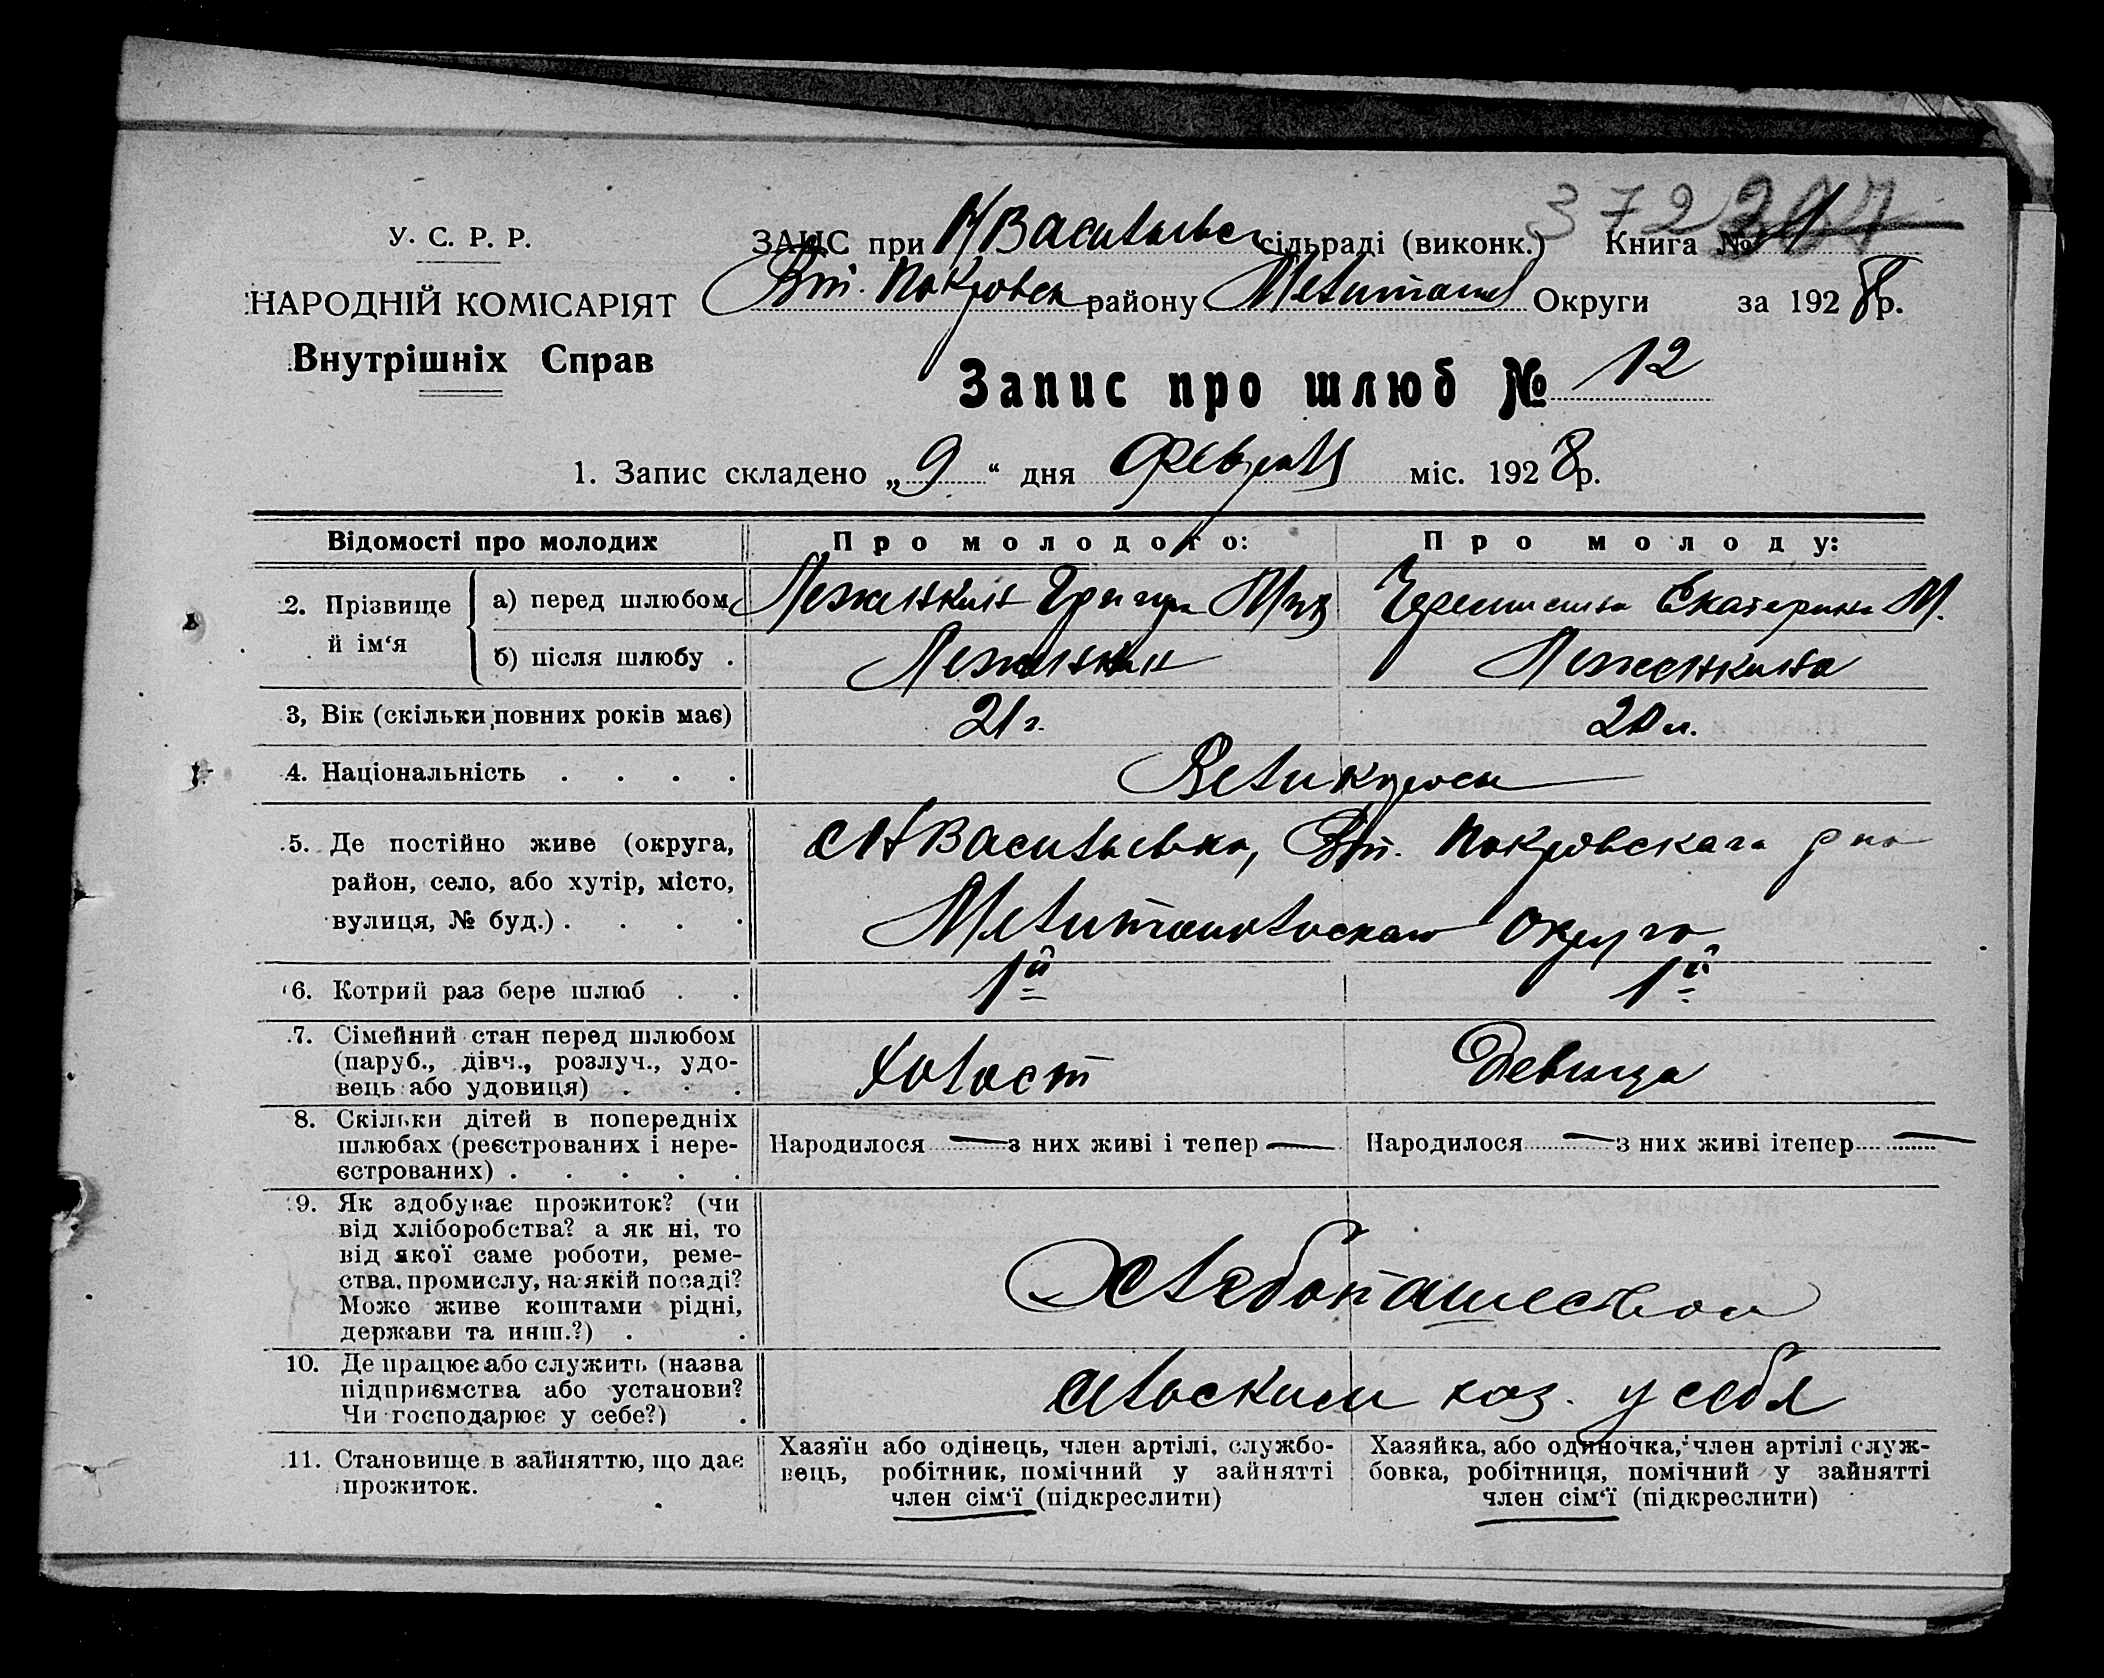 372 207
У. С. Р. Р.
НАРОДНІЙ КОМІСАРІЯТ
Внутрішніх Справ
ЗАГС при Н Васильевс сільраді (виконк.) Книга №
Вт. Покровск району Мелитоп Округи за 1928 р.
Запис про шлюб № 12
1. Запис складено „9“ дня Февраля міс. 1928 р.
Відомості про молодих Про молодого: Про молоду:
2. Прізвище й ім‘я
а) перед шлюбом Лежанкин Григор Екатерина М.
б) після шлюбу . Лежанкин Лежанкина
3, Вік (скільки повних років має) 21 г. 20 л.
4. Національність . . . . Великоросы
5. Де постійно живе (округа, С Н Васильевка, Вт. Покровскага р на
район, село, або хутір, місто, Мелитопольскаго Округа
вулиця, № буд.) . . . .
6. Котрий раз бере шлюб . . 1й 1й
7. Сімейний стан перед шлюбом
(паруб., дівч., розлуч., удо- Холост Девица
вець або удовиця) . . .
8. Скільки дітей в попередніх
шлюбах (реєстрованих і нере- Народилося — з них живі і тепер — Народилося — з них живі ітепер —
єстрованих) . . . . .
9. Як здобуває прожиток? (чи
від хліборобства? а як ні, то
від якої саме роботи, реме-
ства, промислу, на якій посаді? Хлебопашеством
Може живе коштами рідні,
держави та инш.?) . .
10. Де працює або служить (назва
підприємства або установи? сельским хоз. у себя
Чи господарює у себе?) .
11. Становище в зайняттю, що дає
прожиток.
Хазяїн або одінець, член артілі, службо-
вець, робітник, помічний у зайнятті
член сім‘ї (підкреслити)
Хазяйка, або одиночка, член артілі служ-
бовка, робітниця, помічний у зайнятті
член сім‘ї (підкреслити)